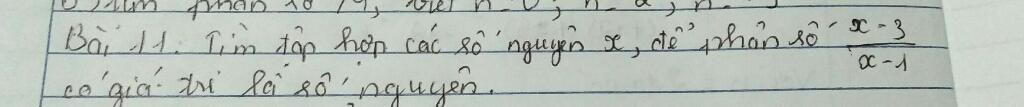 Bài 11. Tìm tập hợp các số nguyên x, để phân số x-3/x-1
có giá trị là số nguyên.